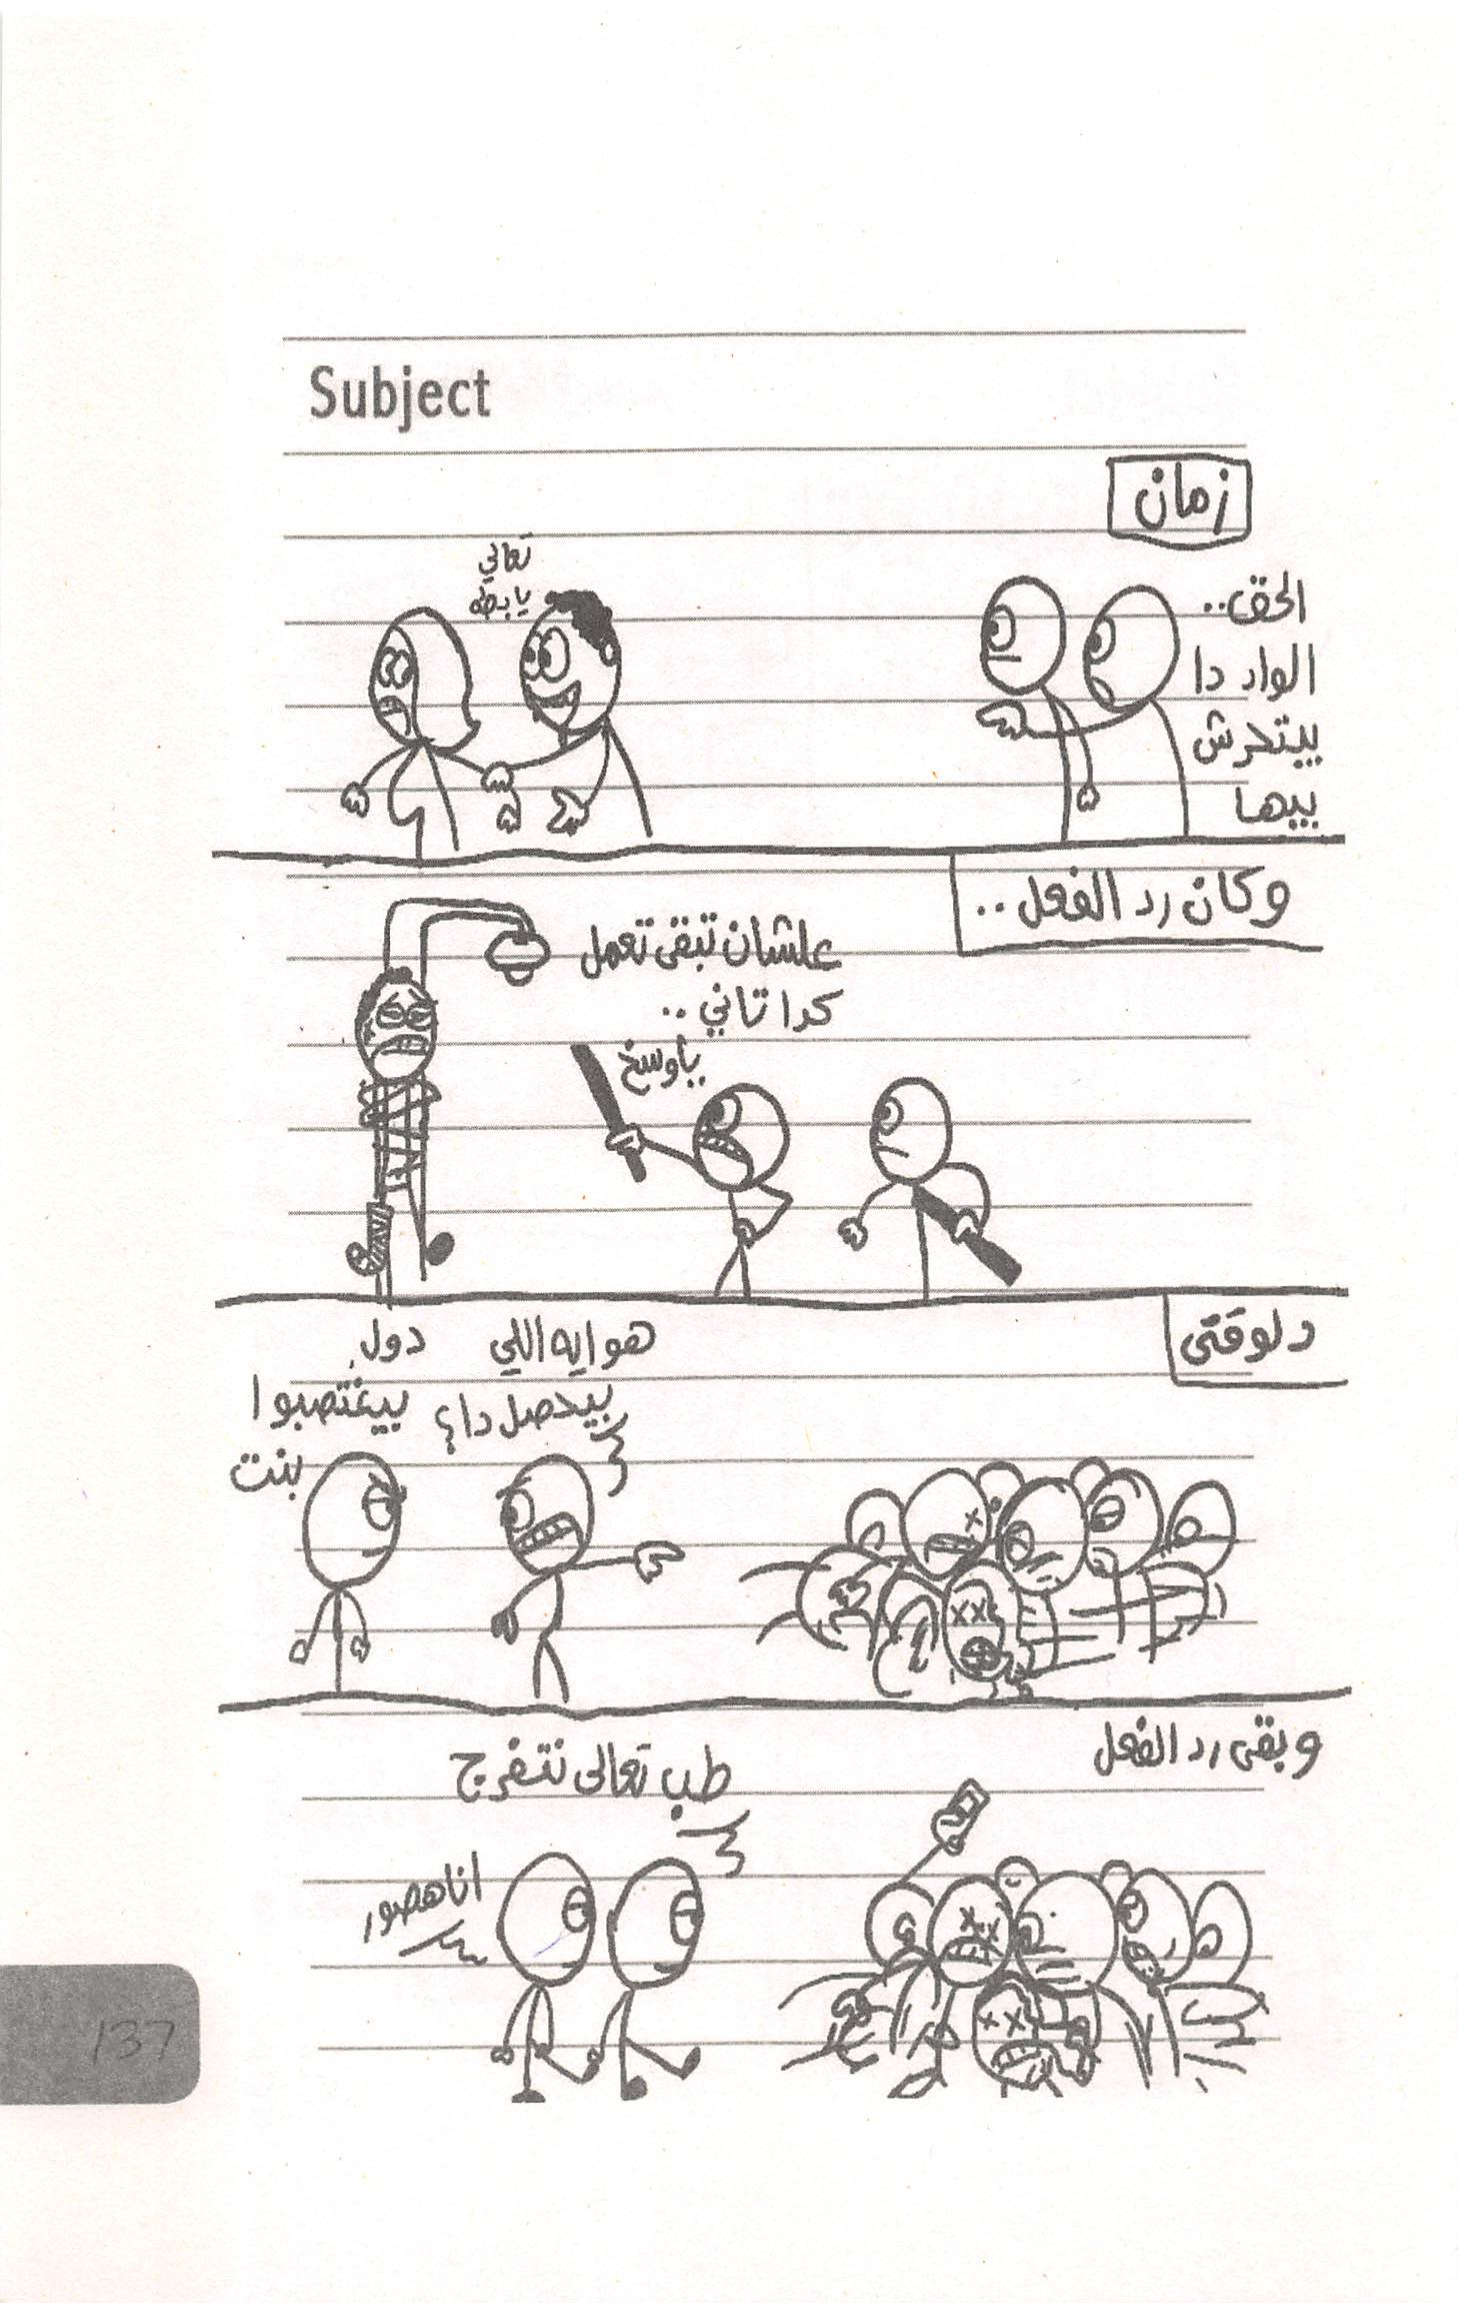 Subject
زمان
الحق..
الواد دا
بيتحرش
بيها
تعالي
يا بطه
وكان رد الفعل..
علشان تبقى تعمل
كدا تاني..
ياوسخ
دلوقتى
هو ايه اللي
بيحصل دا؟
دول
بيغتصبوا
بنت
وبقى رد الفعل
طب تعالى نتفرج
انا هصور
137